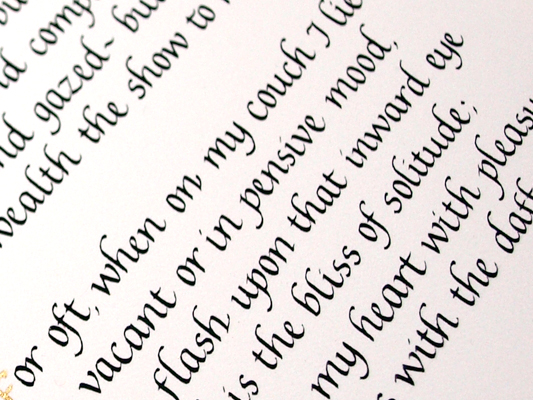 gazed~
wealth the show to
or oft, when on my couch I lie
vacant or in pensive mood,
flash upon that inward eye
is the bliss of solitude;
my heart with
with the